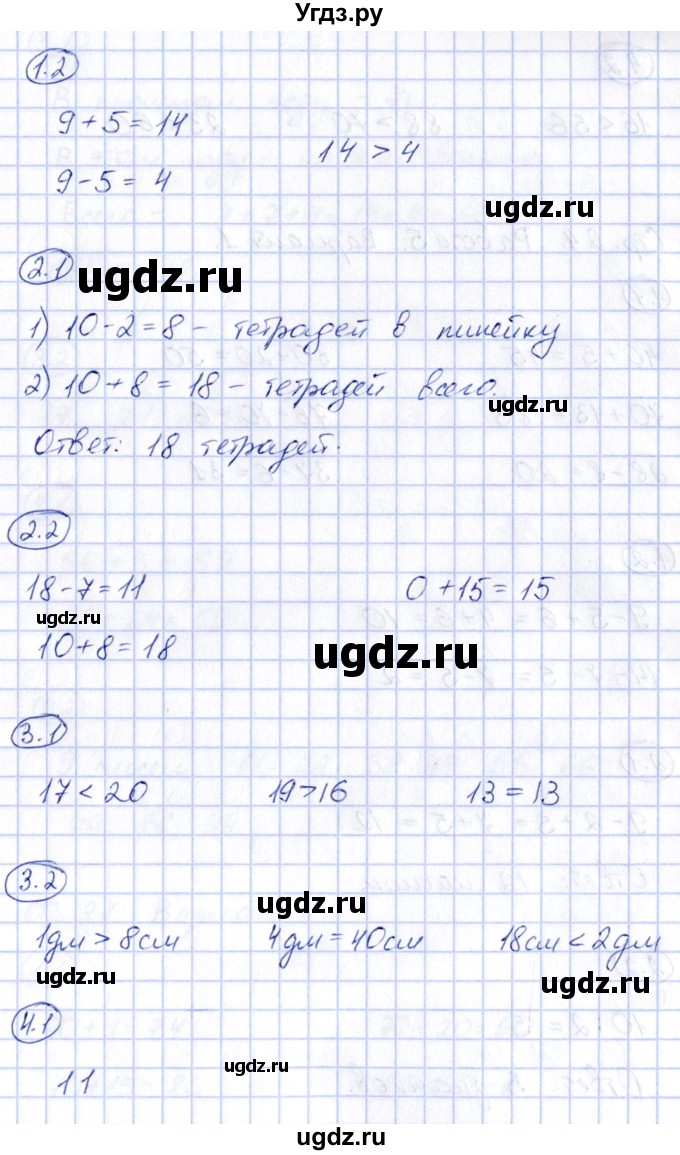 Угдз.ру
1.2
9 + 5 = 14
14 > 4
9 - 5 = 4
ugdz.ru
2.1 ugdz.ru
1) 10 - 2 = 8 - тетрадей в линейку
2) 10 + 8 = 18 - тетрадей всего.
ugdz.ru
Ответ: 18 тетрадей.
2.2
18 - 7 = 11 0 + 15 = 15
ugdz.ru
10 + 8 = 18 ugdz.ru
3.1
17 < 20 19 > 16 13 = 13
3.2
ugdz.ru
1дм > 8см 4дм = 40см 18см < 2дм
ugdz.ru ugdz.ru
4.1
ugdz.ru
11
ugdz.ru